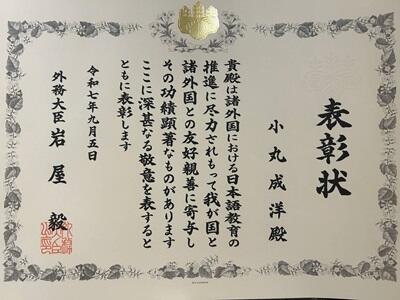 表彰状
小丸成洋殿
貴殿は諸外国における日本語教育の
推進に尽力されもって我が国と
諸外国との友好親善に寄与し
その功績顕著なものがあります
ここに深甚なる敬意を表すると
ともに表彰します
令和七年九月五日
外務大臣 岩屋 毅